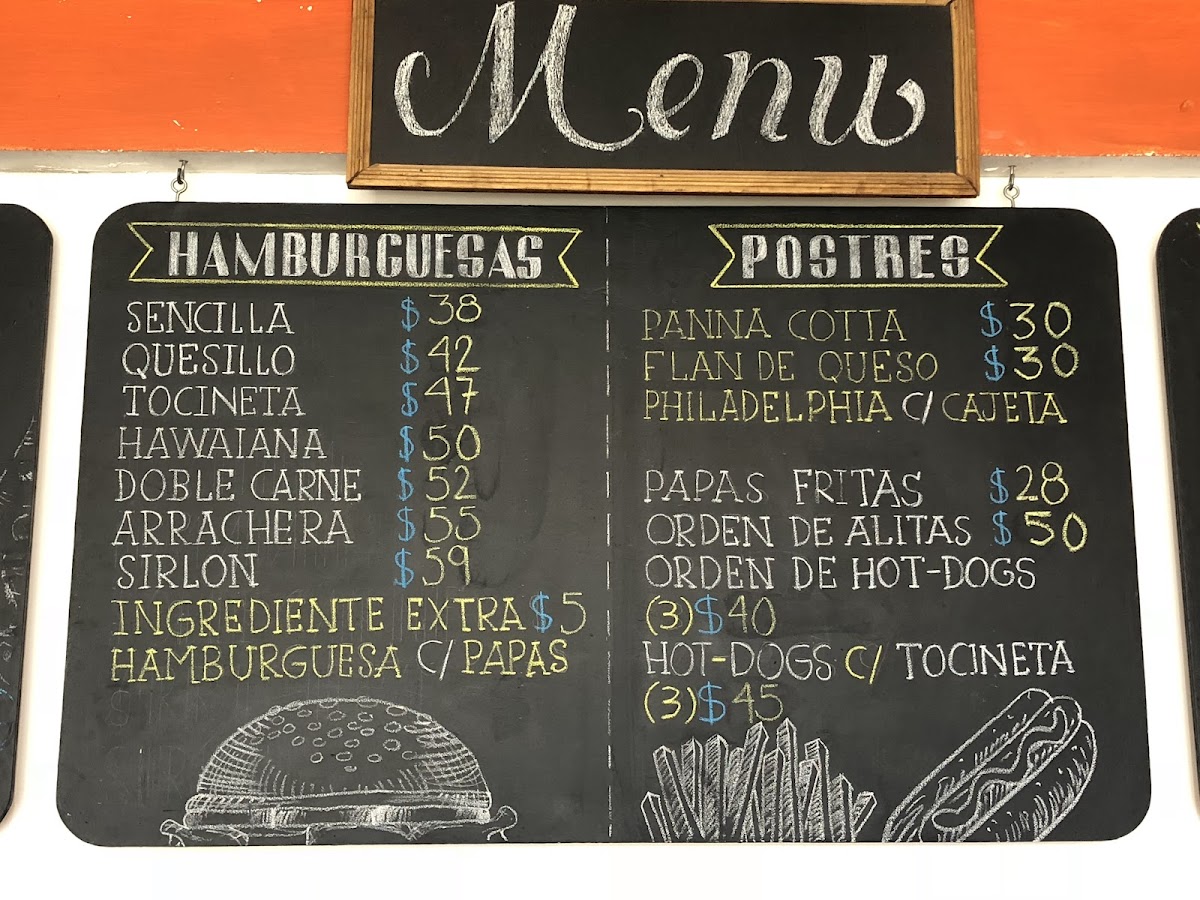 Menu
HAMBURGUESAS
SENCILLA $38
QUESILLO $42
TOCINETA $47
HAWAIANA $50
DOBLE CARNE $52
ARRACHERA $55
SIRLON $59
INGREDIENTE EXTRA $5
HAMBURGUESA C/ PAPAS
POSTRES
PANNA COTTA $30
FLAN DE QUESO $30
PHILADELPHIA C/ CAJETA
PAPAS FRITAS $28
ORDEN DE ALITAS $50
ORDEN DE HOT-DOGS
(3) $40
HOT-DOGS C/ TOCINETA
(3) $45